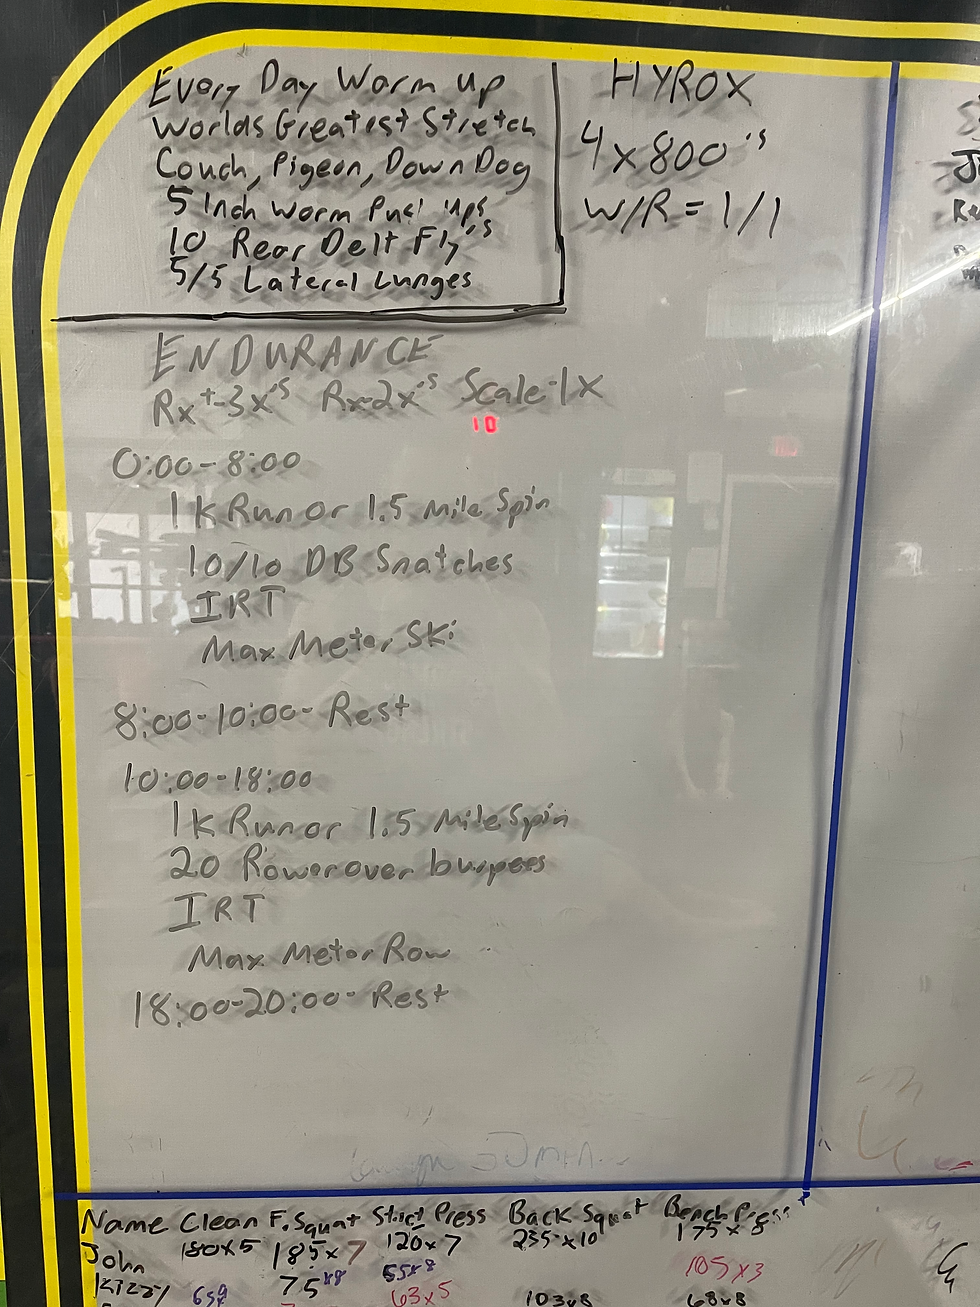 Every Day Warm up
Worlds Greatest Stretch
Couch, Pigeon, Down Dog
5 Inch Worm Push ups
10 Rear Delt Fly's
5/5 Lateral Lunges
HYROX
4x800's
W/R = 1/1
ENDURANCE
Rx+-3x's Rx-2x's Scale-1x
10
0:00-8:00
1K Run or 1.5 Mile Spin
10/10 DB Snatches
IRT
Max Meter Ski
8:00-10:00- Rest
10:00-18:00
1K Run or 1.5 Mile Spin
20 Rower over burpees
IRT
Max Meter Row
18:00-20:00- Rest
Name Clean F. Squat Strict Press Back Squat Bench Press
John 180x5 185x7 120x7 235x10 175x8
75x8 55x8 105x3
63x5 103x8 68x8